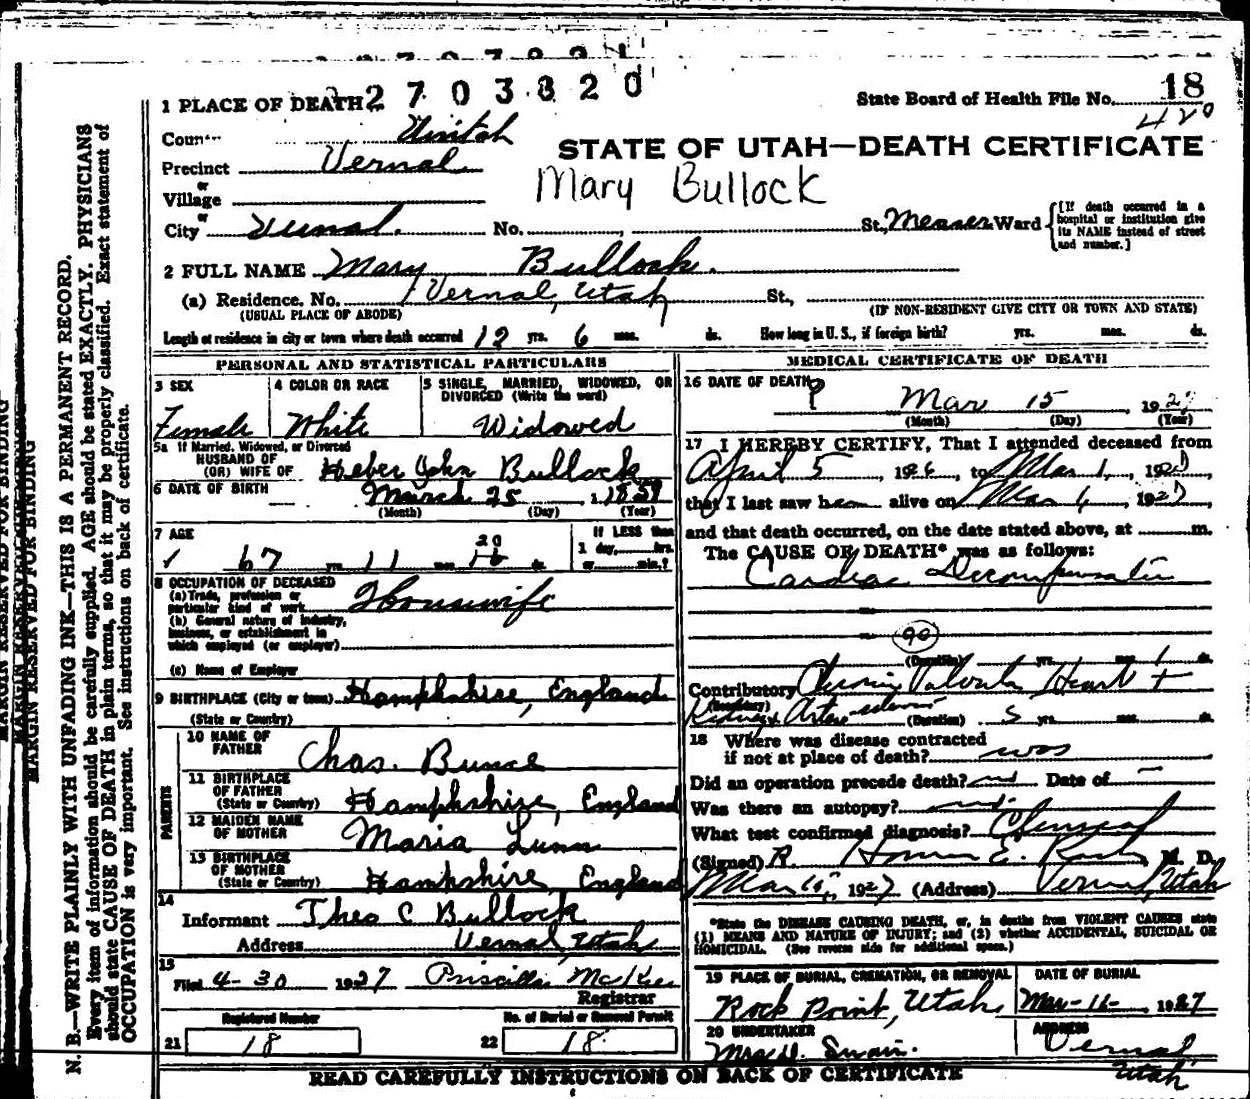 2703820
1 PLACE OF DEATH
State Board of Health File No. 18
420
Uintah
STATE OF UTAH—DEATH CERTIFICATE
Precinct Vernal
Mary Bullock
or
Village
or
City Vernal. No. St., Ward
[If death occurred in a hospital or institution give its NAME instead of street and number.]
2 FULL NAME Mary Bullock.
(a) Residence. No. Vernal, Utah St.,
(USUAL PLACE OF ABODE) (IF NON-RESIDENT GIVE CITY OR TOWN AND STATE)
Length of residence in city or town where death occurred 12 yrs. 6 mos. ds. How long in U. S., if foreign birth? yrs. mos. ds.
PERSONAL AND STATISTICAL PARTICULARS
3 SEX 4 COLOR OR RACE 5 SINGLE, MARRIED, WIDOWED, OR DIVORCED (Write the word)
Female White Widowed
5a If Married, Widowed, or Divorced
HUSBAND OF
(OR) WIFE OF Heber John Bullock
6 DATE OF BIRTH March 25 1859
(Month) (Day) (Year)
7 AGE If LESS than
20
67 yrs. 11 mos. ds. 1 day, hrs.
or min.?
8 OCCUPATION OF DECEASED
(a) Trade, profession or
particular kind of work Housewife
(b) General nature of industry,
business, or establishment in
which employed (or employer)
(c) Name of Employer
9 BIRTHPLACE (City or town) Hamphshire, England
(State or Country)
PARENTS
10 NAME OF
FATHER Chas. Bunce
11 BIRTHPLACE
OF FATHER
(State or Country) Hamphshire, England
12 MAIDEN NAME
OF MOTHER Maria Lunn
13 BIRTHPLACE
OF MOTHER
(State or Country) Hampshire, England
14
Informant Theo C Bullock
Address Vernal, Utah
15
Filed 4-30 1927 Priscilla McKee
Registrar
Registered Number No. of Burial or Removal Permit
21 18 22 18
MEDICAL CERTIFICATE OF DEATH
16 DATE OF DEATH
Mar 15, 1927
(Month) (Day) (Year)
17 I HEREBY CERTIFY, That I attended deceased from
April 5, 1926, to Mar 1, 192
that I last saw h alive on Mar 1927
and that death occurred, on the date stated above, at m.
The CAUSE OF DEATH* was as follows:
Cardiac Decompensation
90
(Duration) yrs. mos. 1 ds.
Contributory Chronic Valvular Heart +
(Secondary)
Kidney + Arterio (Duration) 5 yrs. mos. ds.
18 Where was disease contracted
if not at place of death? was
Did an operation precede death? Date of
Was there an autopsy?
What test confirmed diagnosis? Clinical
(Signed) R. Homer E. M. D.
Mar 1927 (Address) Vernal, Utah
*State the DISEASE CAUSING DEATH, or, in deaths from VIOLENT CAUSES state
(1) MEANS AND NATURE OF INJURY; and (2) whether ACCIDENTAL, SUICIDAL OR
HOMICIDAL. (See reverse side for additional space.)
19 PLACE OF BURIAL, CREMATION, OR REMOVAL DATE OF BURIAL
Rock Point, Utah, Mar-16- 1927
20 UNDERTAKER ADDRESS
Swain. Vernal,
Utah
READ CAREFULLY INSTRUCTIONS ON BACK OF CERTIFICATE
N. B.—WRITE PLAINLY WITH UNFADING INK—THIS IS A PERMANENT RECORD.
Every item of information should be carefully supplied. AGE should be stated EXACTLY. PHYSICIANS
should state CAUSE OF DEATH in plain terms, so that it may be properly classified. Exact statement of
OCCUPATION is very important. See instructions on back of certificate.
MARGIN RESERVED FOR BINDING